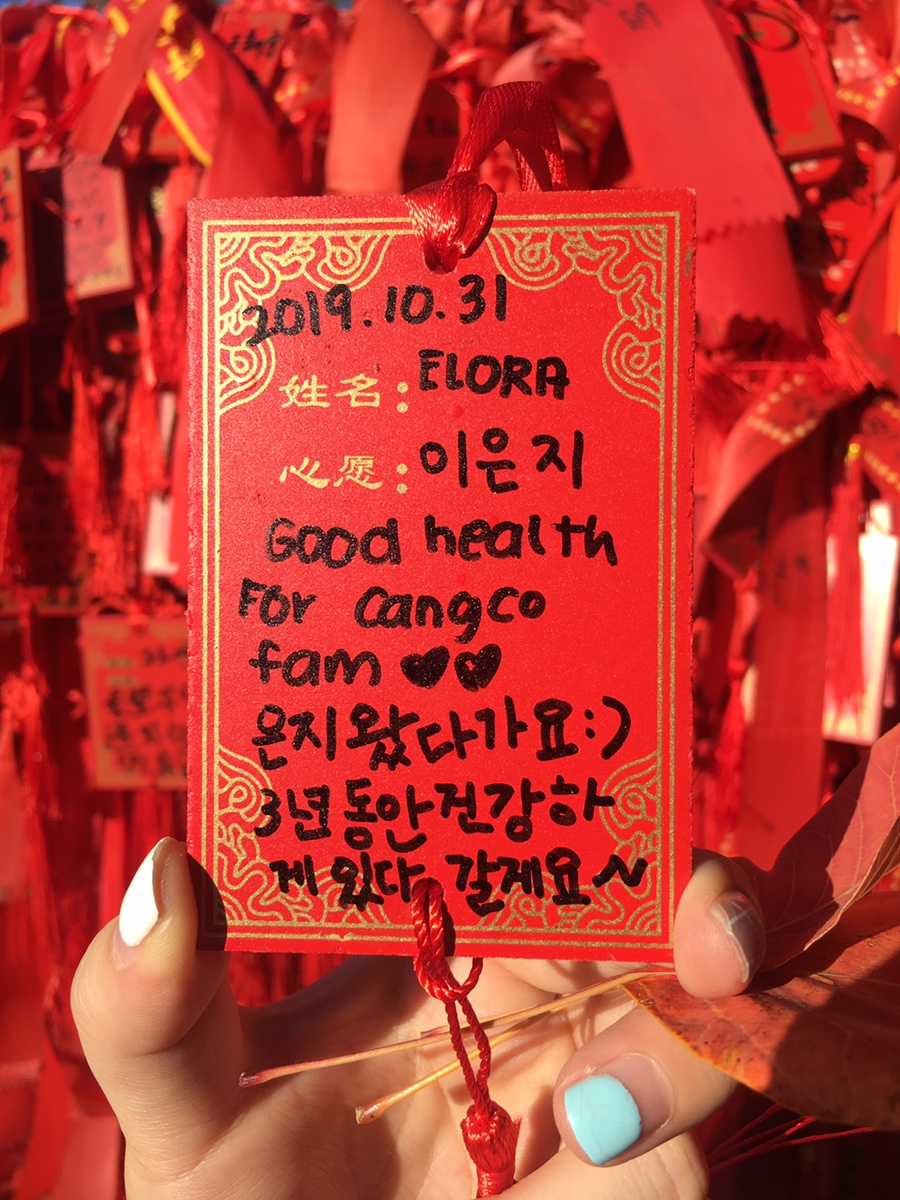 2019.10.31
姓名: ELORA
心愿: 이은지
Good health
For cangco
fam ♥♥
은지왔다가요:)
3년동안건강하
게 있다 갈게요~